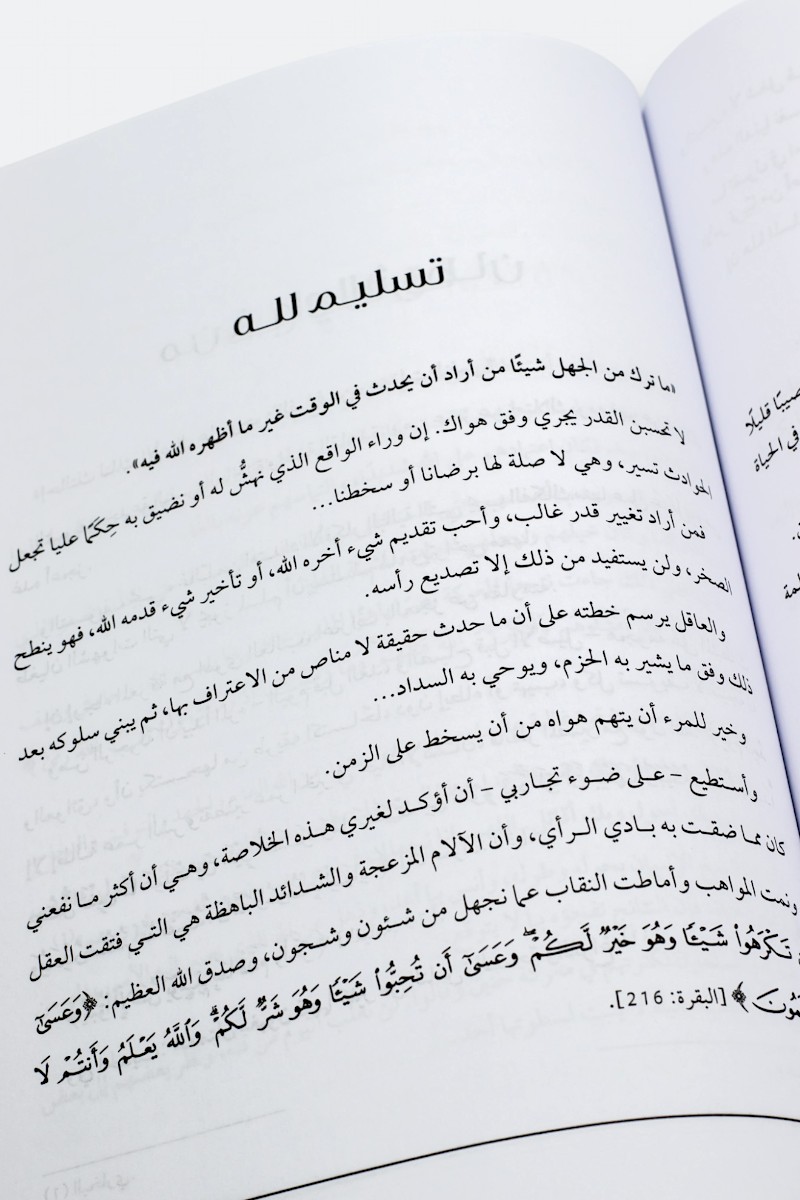 تسليم لله
«ما ترك من الجهل شيئًا من أراد أن يحدث في الوقت غير ما أظهره الله فيه».
لا تحسبن القدر يجري وفق هواك. إن وراء الواقع الذي نهشُّ له أو نضيق به حِكَمًا عليا تجعل
الحوادث تسير، وهي لا صلة لها برضانا أو سخطنا...
فمن أراد تغيير قدر غالب، وأحب تقديم شيء أخره الله، أو تأخير شيء قدمه الله، فهو ينطح
الصخر، ولن يستفيد من ذلك إلا تصديع رأسه.
والعاقل يرسم خطته على أن ما حدث حقيقة لا مناص من الاعتراف بها، ثم يبني سلوكه بعد
ذلك وفق ما يشير به الحزم، ويوحي به السداد...
وخير للمرء أن يتهم هواه من أن يسخط على الزمن.
وأستطيع – على ضوء تجاربي – أن أؤكد لغيري هذه الخلاصة، وهي أن أكثر ما نفعني
كان مما ضقت به بادي الرأي، وأن الآلام المزعجة والشدائد الباهظة هي التي فتقت العقل
ونمت المواهب وأماطت النقاب عما نجهل من شئون وشجون، وصدق الله العظيم: ﴿وَعَسَىٰٓ
تَكْرَهُوا۟ شَيْـًٔا وَهُوَ خَيْرٌ لَّكُمْ ۖ وَعَسَىٰٓ أَن تُحِبُّوا۟ شَيْـًٔا وَهُوَ شَرٌّ لَّكُمْ ۗ وَٱللَّهُ يَعْلَمُ وَأَنتُمْ لَا
﴾ [البقرة: 216].
قليلًا
في الحياة